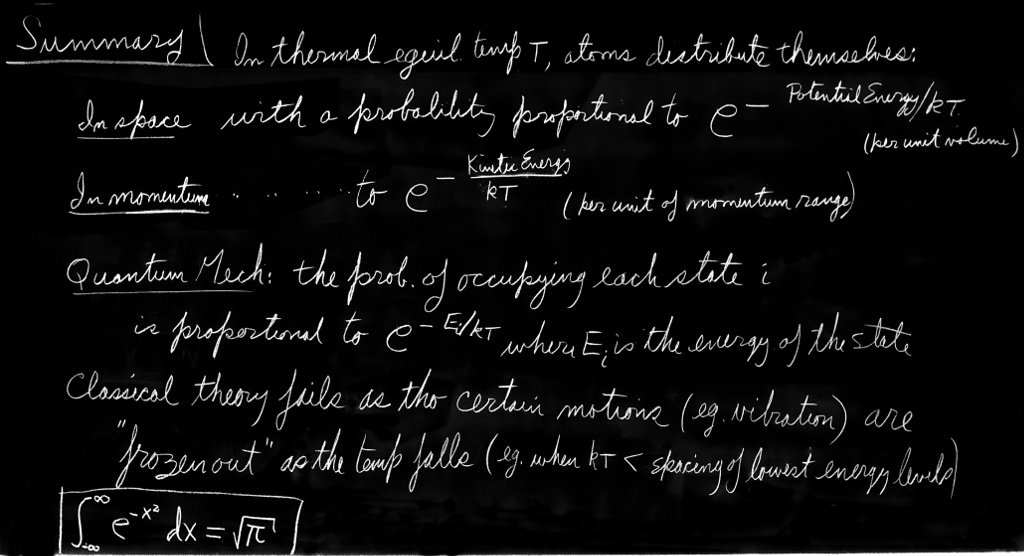 Summary In thermal equil. temp T, atoms distribute themselves:
In space with a probability proportional to e^- Potential Energy/kT (per unit volume)
In momentum .. .. ... .. to e^- Kinetic Energy/kT (per unit of momentum range)
Quantum Mech: the prob. of occupying each state i
is proportional to e^-Ei/kT where Ei is the energy of the state
Classical theory fails as tho certain motions (eg. vibration) are
"frozen out" as the temp falls (eg. when kT < spacing of lowest energy levels)
∫_-∞^∞ e^-x² dx = √π